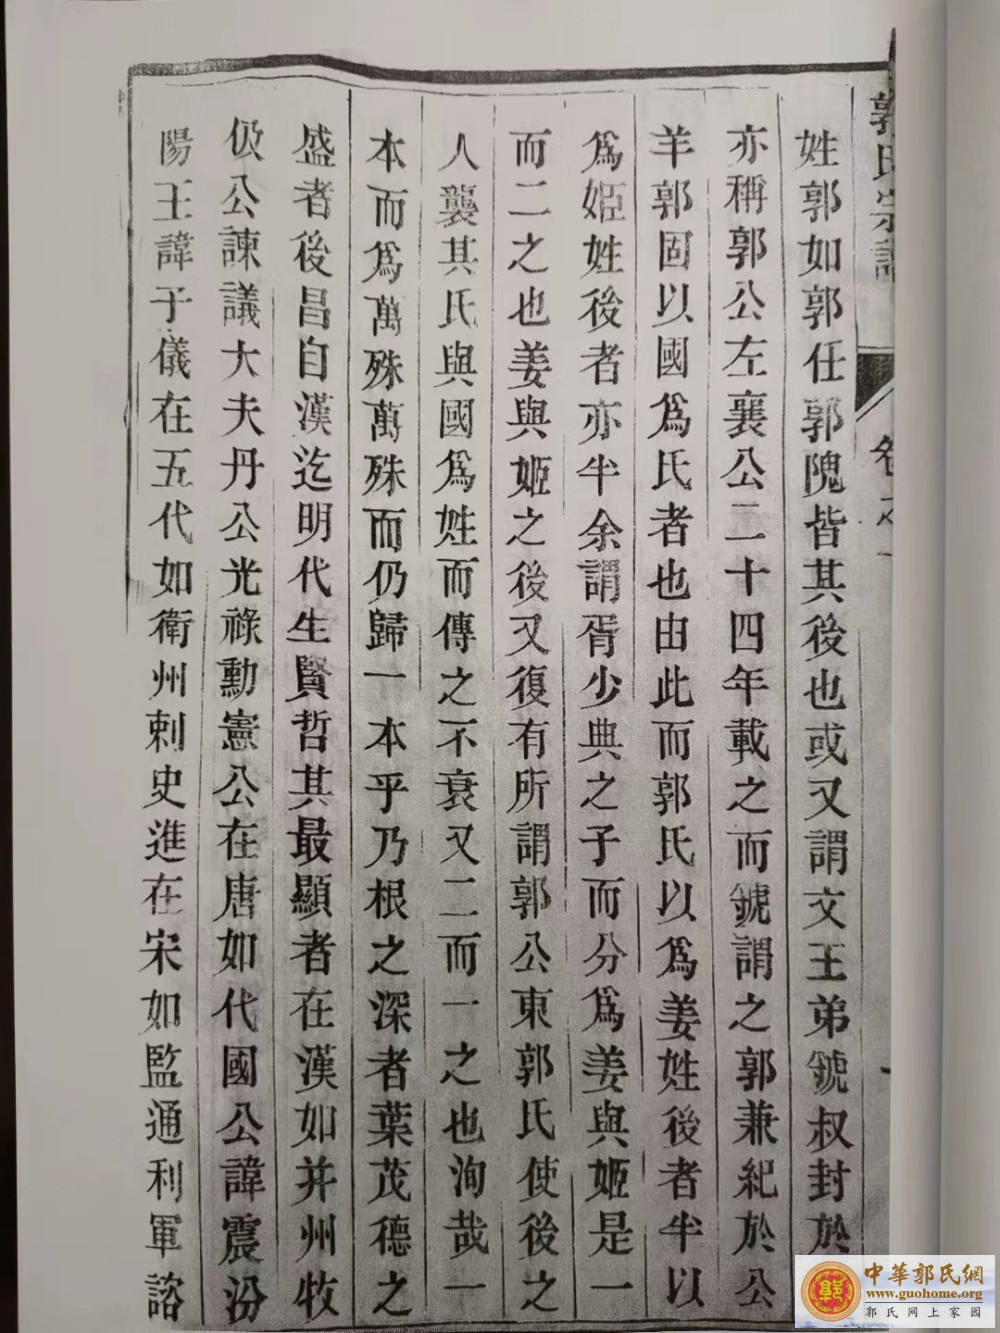 郭氏宗譜
卷之
姓郭如郭任郭隗皆其後也或又謂文王弟虢叔封於
亦稱郭公左襄公二十四年載之而虢謂之郭兼紀於公
羊郭固以國為氏者也由此而郭氏以為姜姓後者半以
為姬姓後者亦半余謂胥少典之子而分為姜與姬是一
而二之也姜與姬之後又復有所謂郭公東郭氏使後之
人襲其氏與國為姓而傳之不衰又二而一之也洵哉一
本而為萬殊萬殊而仍歸一本乎乃根之深者葉茂德之
盛者後昌自漢迄明代生賢哲其最顯者在漢如并州牧
伋公諫議大夫丹公光祿勳憲公在唐如代國公諱震汾
陽王諱子儀在五代如衛州刺史進在宋如監通利軍諮
中華郭氏網
www.guohome.org
郭氏网上家园